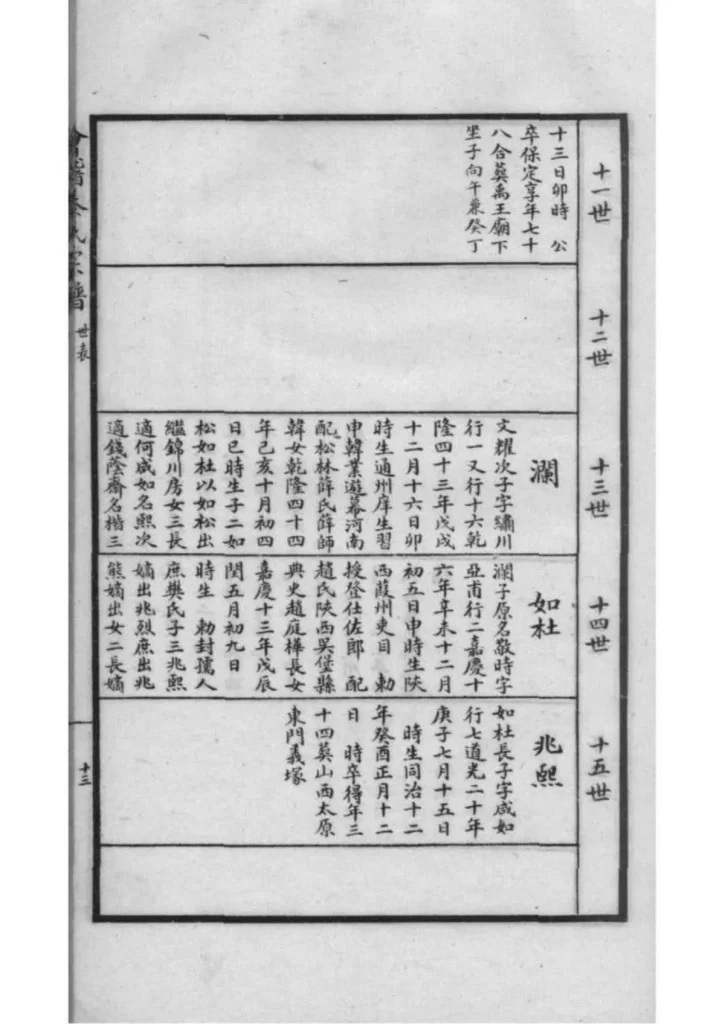 十一世
十三日卯時　公
卒保定享年七十
八合葬禹王廟下
坐子向午兼癸丁
十二世
十三世
瀾
文耀次子字繡川
行一又行十六乾
隆四十三年戊戌
十二月十六日卯
時生通州庠生習
申韓業遊幕河南
配松林薛氏薛師
韓女乾隆四十四
年己亥十月初四
日巳時生子二如
松如杜以如松出
繼錦川房女三長
適何咸如名熙次
適錢蔭齋名楷三
十四世
如杜
瀾子原名敬時字
亞甫行二嘉慶十
六年辛未十二月
初五日申時生陝
西葭州吏目　勅
授登仕佐郎　配
趙氏陝西吳堡縣
典史趙庭樺長女
嘉慶十三年戊辰
閏五月初九日
時生　勅封孺人
庶樊氏子三兆熙
嫡出兆烈庶出兆
熊嫡出女二長嫡
十五世
兆熙
如杜長子字咸如
行七道光二十年
庚子七月十五日
時生同治十二
年癸酉正月十二
日　時卒得年三
十四葬山西太原
東門義塚
氏宗譜
世表
十三